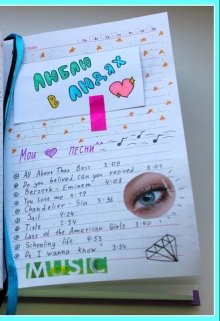 Date
ЛЮБЛЮ
В ЛЮДЯХ
Мои песни
All About That Bass 3:09
Do you belived can you resired 8:01
Berzerk - Eminem 4:08
You Love me 4:19
Chandelier - Sia 3:36
Sail 4:24
Title 2:54
Last of the American Girls 3:40
Schooling life 4:53
Do I wanna know? 3:54
MUSIC